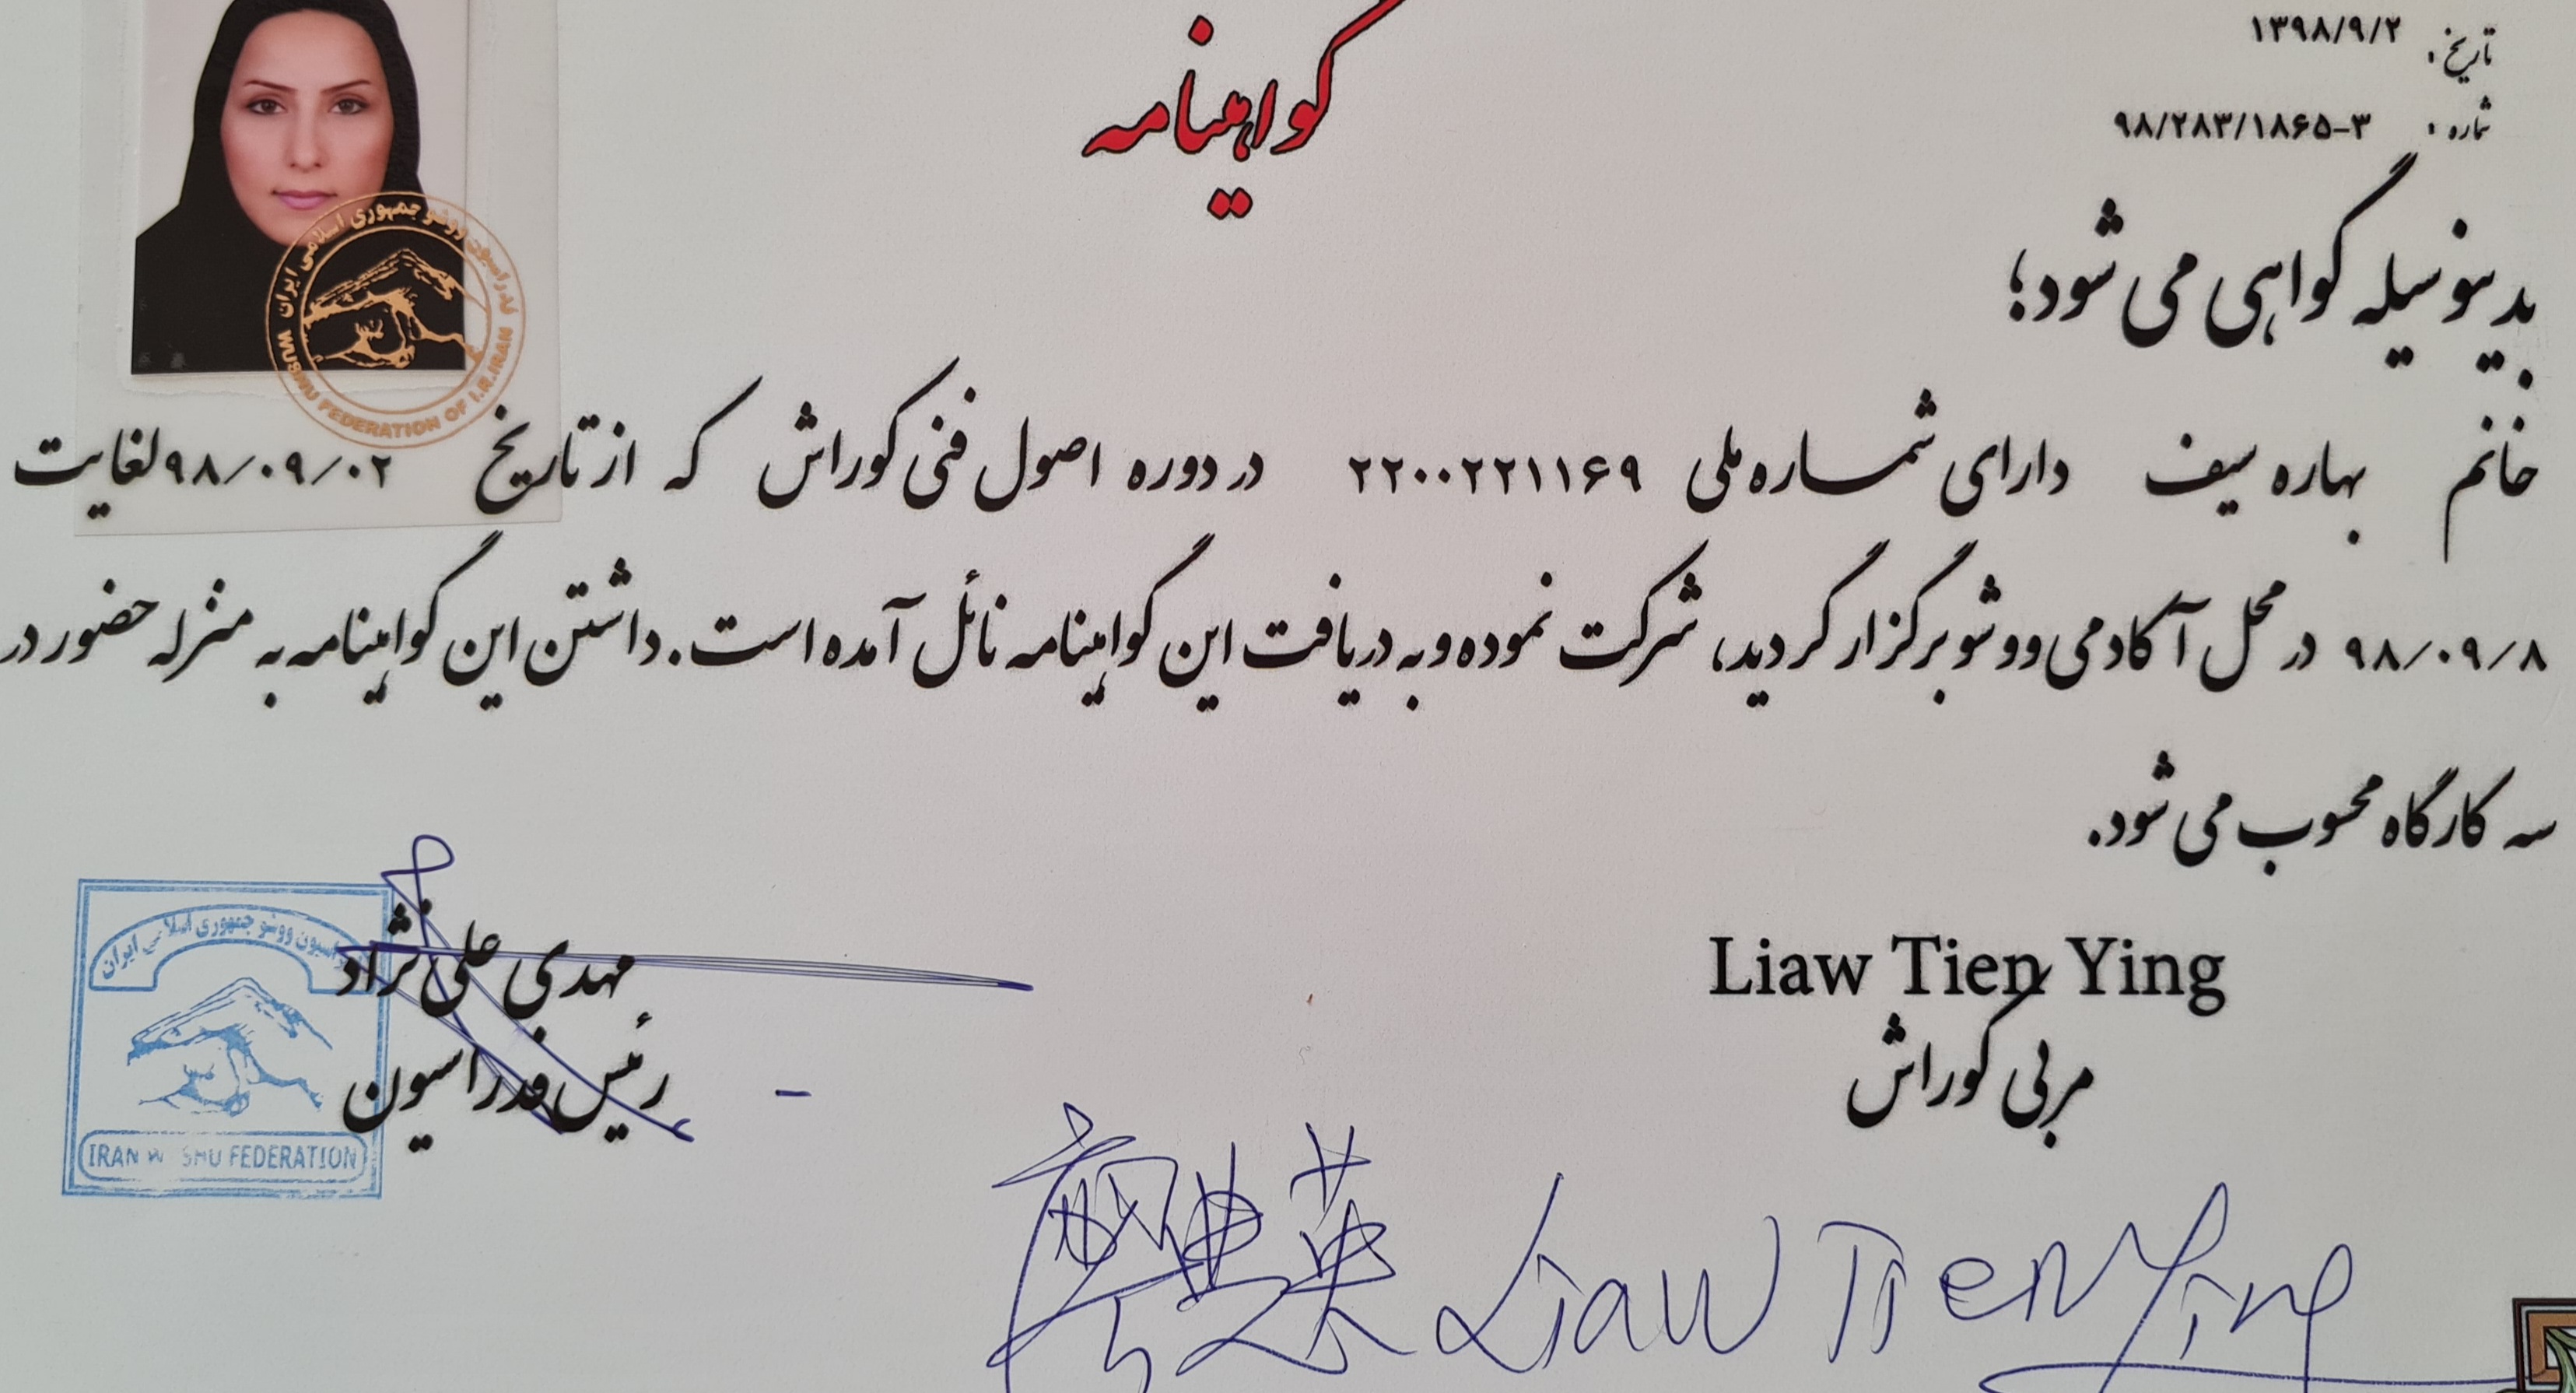 گواهینامه
تاریخ: ۱۳۹۸/۹/۲
شماره: ۹۸/۲۸۳/۱۸۶۵-۳
بدینوسیله گواهی می شود؛
خانم بهاره سیف دارای شماره ملی ۲۲۰۰۲۲۱۱۶۹ در دوره اصول فنی کوراش که از تاریخ ۹۸/۰۹/۰۲ لغایت
۹۸/۰۹/۸ در محل آکادمی ووشو برگزار گردید، شرکت نموده و به دریافت این گواهینامه نائل آمده است. داشتن این گواهینامه به منزله حضور در
سه کارگاه محسوب می شود.
Liaw Tien Ying
مربی کوراش
مهدی علی نژاد
رئیس فدراسیون
فدراسیون ووشو جمهوری اسلامی ایران
WUSHU FEDERATION OF I.R.IRAN
ووشو جمهوری اسلامی ایران
IRAN W SHU FEDERATION
廖典英 Liaw Tien Ying